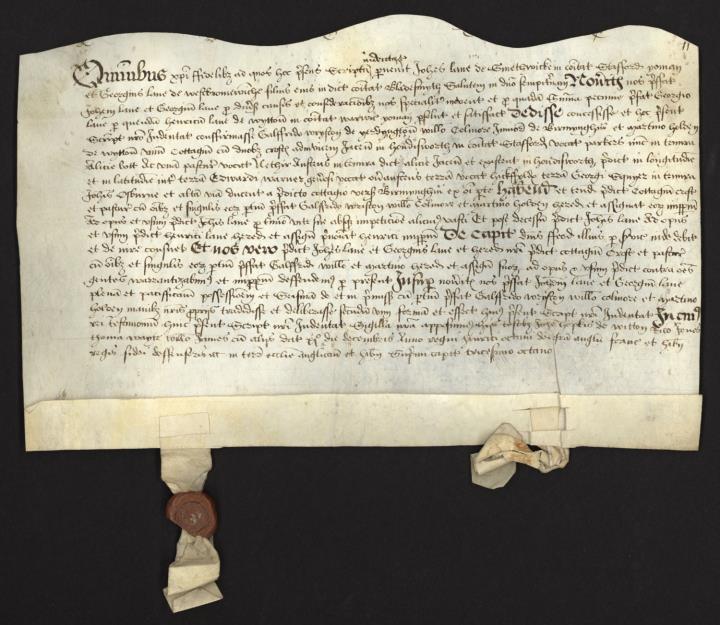 indentat
Omnibus xpi fidelibz ad quos hoc psens Scriptu pvenit Johes lane de Smethwike in comitat Stafford yoman
et Georgius lane de westbromwiche filius eius in dict comitat Salutem in dno sempiternam Noveritis nos pfat
Johem lane et Georgiu lane p divsis causis et considerationibz nos specialit movent et p quadam summa pecunie pfat Georgio
lane p quendam henricu lane de wytton in comitat warwic yoman psolut et satisfact Dedisse concessisse et hoc psent
Script nro Indentat confirmasse Galfrido wrixsey de yerdyngton willo Colmore Junior de Birmyngham et martino holden
de wytton unu Cottagiu cu duobz croft adinvicem Jacen in hendisworth in comitat Stafford vocat parkers unu in tenura
Alicie bott ac una pastur vocat Nethir in tenura dict alicie Jacen et existent in hendisworth pdict in longitudine
et in latitudine int terra Edwardi warner gensi vocat terra vocat terra Georgii Squyer in tenura
Johis Osburne et alta via ducent a pdicto cottagio vers Birmyngham ex oi pte Habend et tenend pdict Cottagiu croft
et pastur cu oibz et singulis eorz ptin pfat Galfrido wrixsey willo Colmore et martino holden hered et assignat eorz imppm
ad opus et usum pdict Johis lane p tmino vite sue absqz impeticione alicuius vasti Et post decessu pdict Johis lane ad opus
et usum pdict henrici lane hered et assign pdict henrici imppm De Capit dnis feod illius p svic inde debit
et de iure consuet Et nos vero pdict Johes lane et Georgius lane et hered nri pdict cottagiu croft et pastur
cu oibz et singulis eorz ptin pfat Galfrido willo et martino hered et assign suorz ad opus et usum pdict contra oes
gentes warantizabim et imppm defendem p psent Insup noverit nos pfat Johem lane et Georgiu lane
plena et pacificam possessionem et seisinam de et in pmiss cu ptin pfat Galfrido wrixsey willo Colmore et martino
holden manibz nris ppriis tradidisse et deliberasse secundu vim forma et effect huius psent Script nri Indentat In cuius
rei testimonium huic psent Script nro Indentat Sigilla nra apposuimus hiis testibz de witton Rico Jones
Thoma willo James cu aliis dat die decembris Anno regni henrici octavi dei gra anglie franc et hibn
regis fidei defensoris ac in terra ecclie anglicane et hibn Supmi capit tricesimo octavo